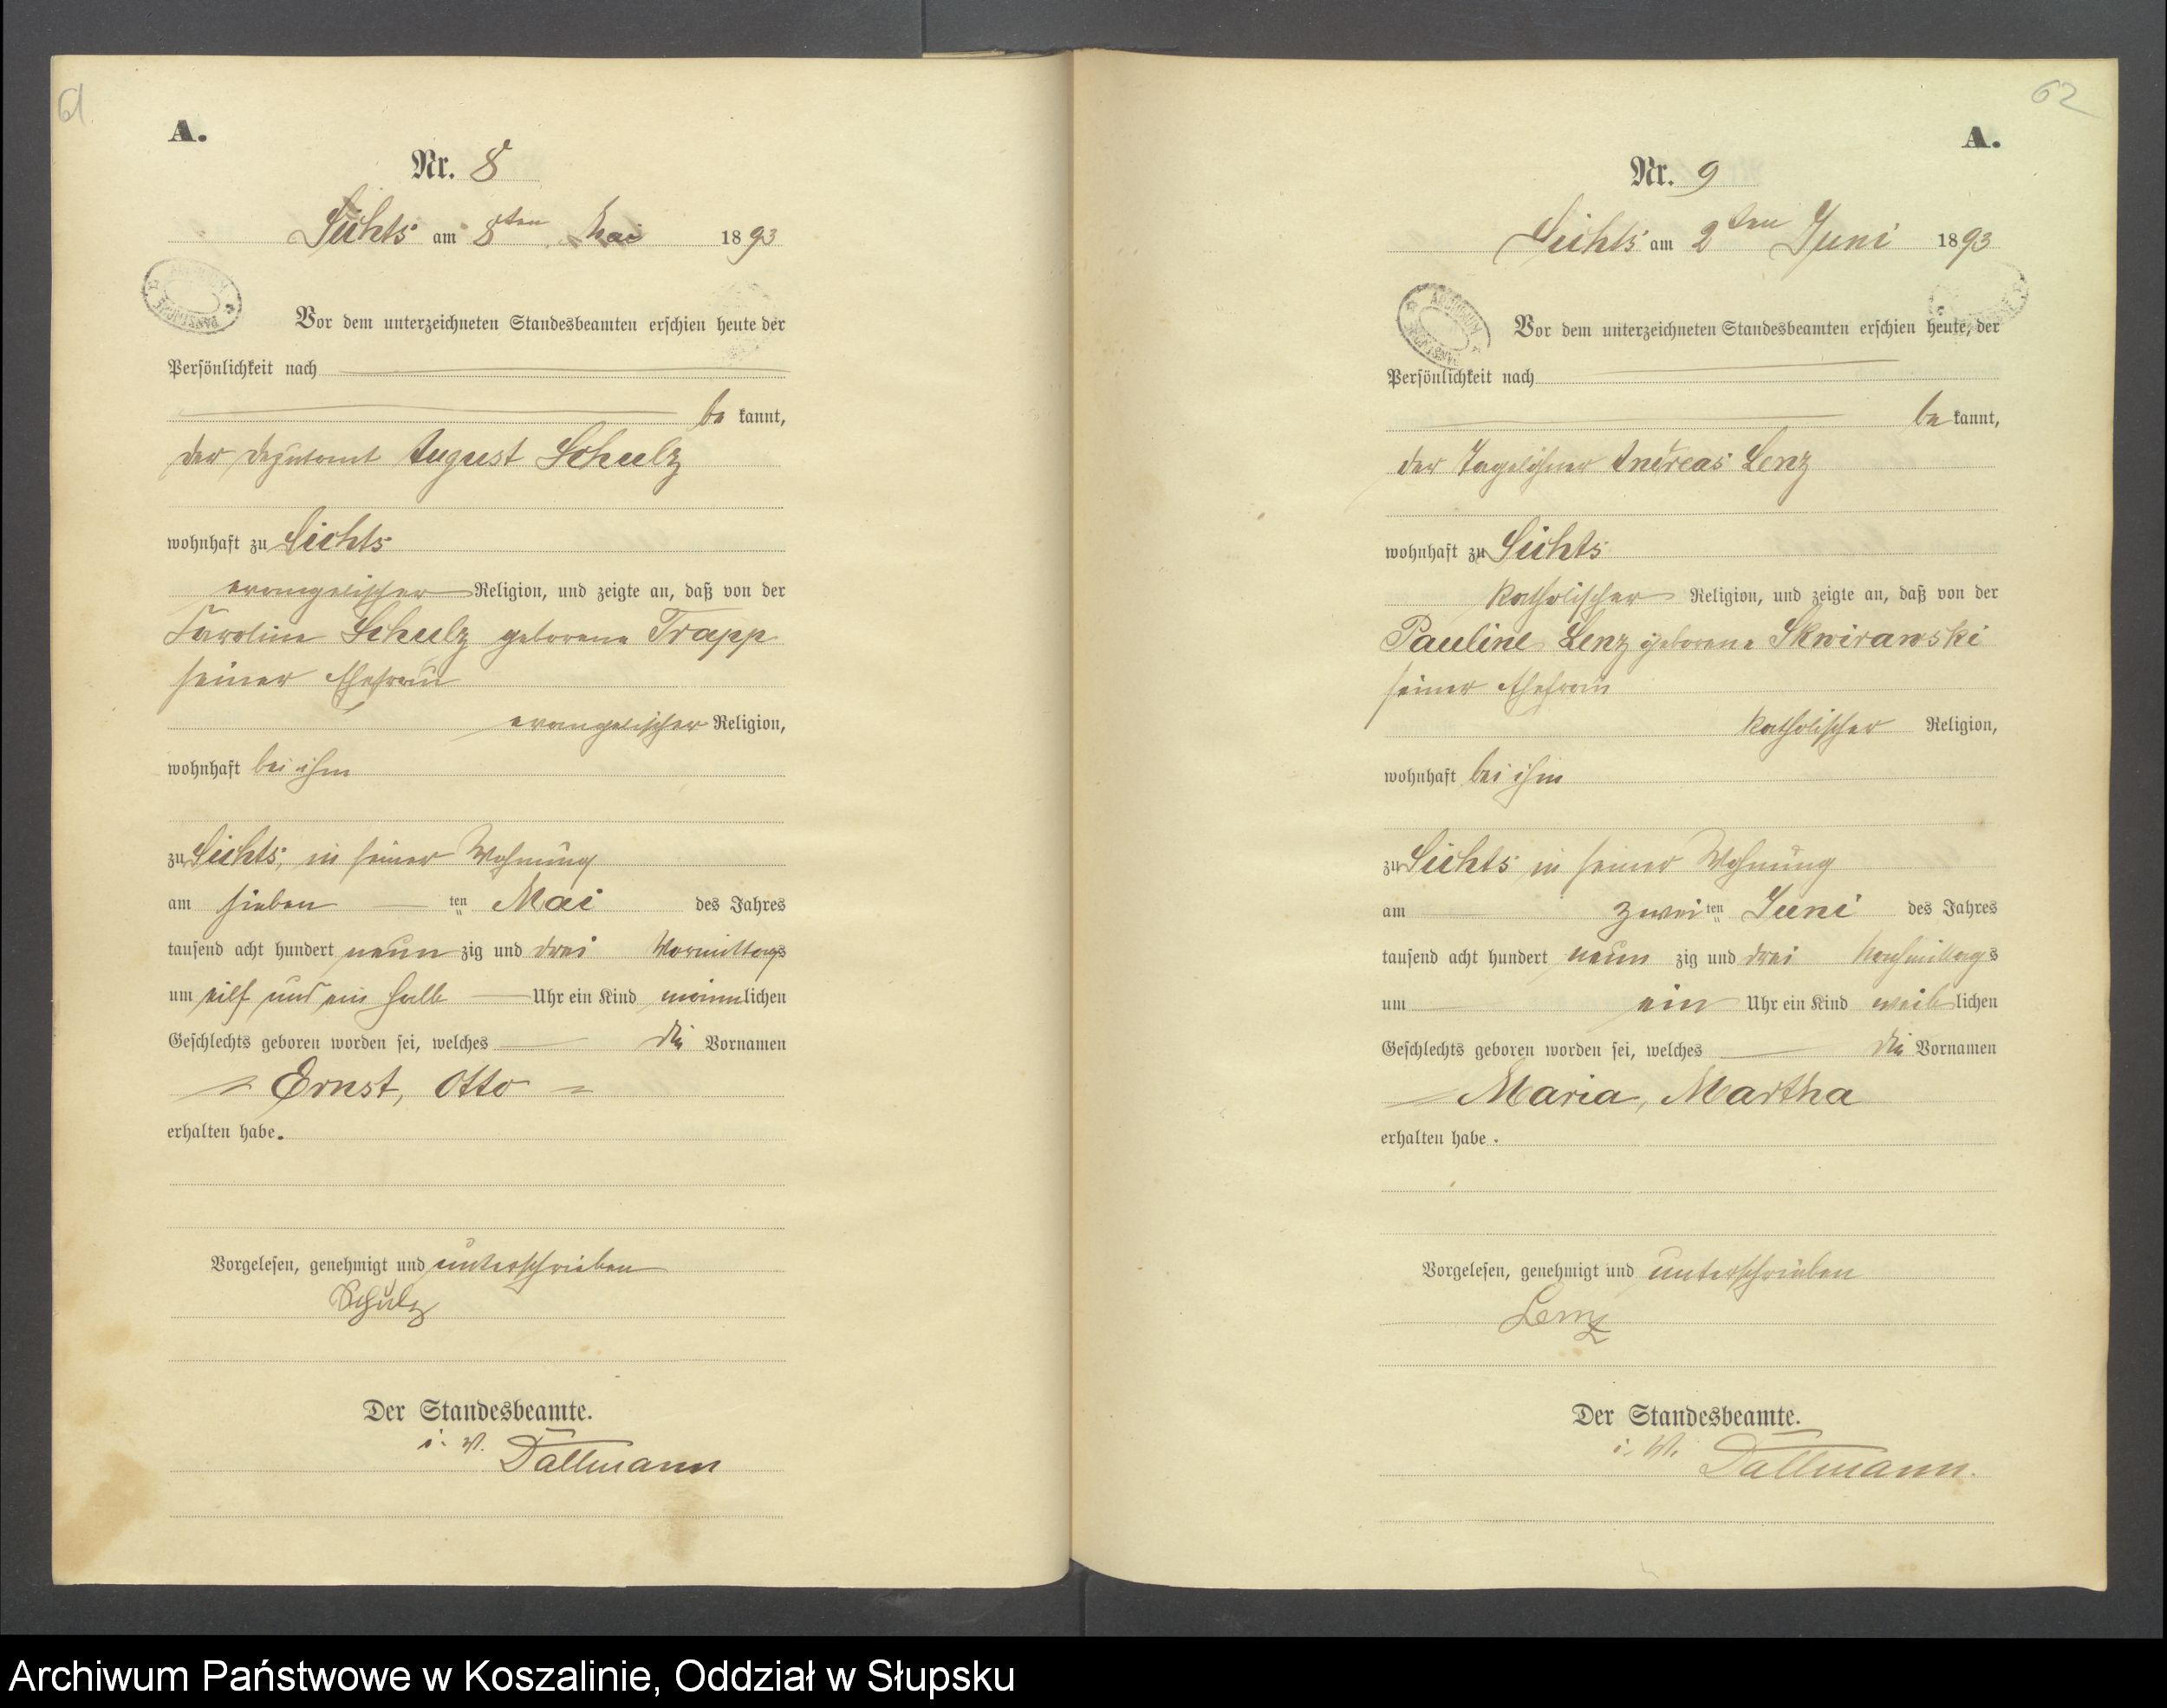 61
A.
Nr. 8
Sichts am 8ten Mai 1893
Vor dem unterzeichneten Standesbeamten erschien heute der
Persönlichkeit nach
be kannt,
der Deputant August Schulz
wohnhaft zu Sichts
evangelischer Religion, und zeigte an, daß von der
Caroline Schulz geborene Trapp
seiner Ehefrau
evangelischer Religion,
wohnhaft bei ihm
zu Sichts, in seiner Wohnung
am sieben ten Mai des Jahres
tausend acht hundert neun zig und drei Vormittags
um eilf und ein halb Uhr ein Kind männlichen
Geschlechts geboren worden sei, welches die Vornamen
Ernst, Otto
erhalten habe.
Vorgelesen, genehmigt und unterschrieben
Schulz
Der Standesbeamte.
i. V. Dallmann
62
A.
Nr. 9
Sichts am 2ten Juni 1893
ARCHIWUM
Vor dem unterzeichneten Standesbeamten erschien heute, der
Persönlichkeit nach
be kannt,
der Tagelöhner Andreas Lenz
wohnhaft zu Sichts
katholischer Religion, und zeigte an, daß von der
Pauline Lenz geborene Skwirawski
seiner Ehefrau
katholischer Religion,
wohnhaft bei ihm
zu Sichts in seiner Wohnung
am zwei ten Juni des Jahres
tausend acht hundert neun zig und drei Nachmittags
um ein Uhr ein Kind weiblichen
Geschlechts geboren worden sei, welches die Vornamen
Maria, Martha
erhalten habe.
Vorgelesen, genehmigt und unterschrieben
Lenz
Der Standesbeamte.
i. V. Dallmann.
Archiwum Państwowe w Koszalinie, Oddział w Słupsku